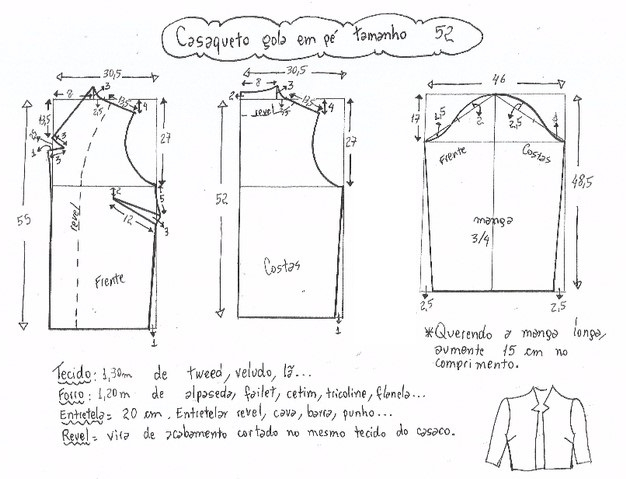 Casaqueto gola em pé tamanho 52
30,5
30,5
46
8
3
2,5
13,5
4
13,5
3
3
1
27
55
revel
2
5
12
3
Frente
1
2
8
3
revel
13,5
4
27
52
Costas
1
17
1,5
2
2,5
Frente
Costas
48,5
manga
3/4
2,5
2,5
*Querendo a manga longa,
aumente 15 cm no
comprimento.
Tecido: 1,30m de tweed, veludo, lã...
Forro: 1,20m de alpaseda, failet, cetim, tricoline, flanela...
Entretela= 20 cm. Entretelar revel, cava, barra, punho...
Revel= vira de acabamento cortado no mesmo tecido do casaco.